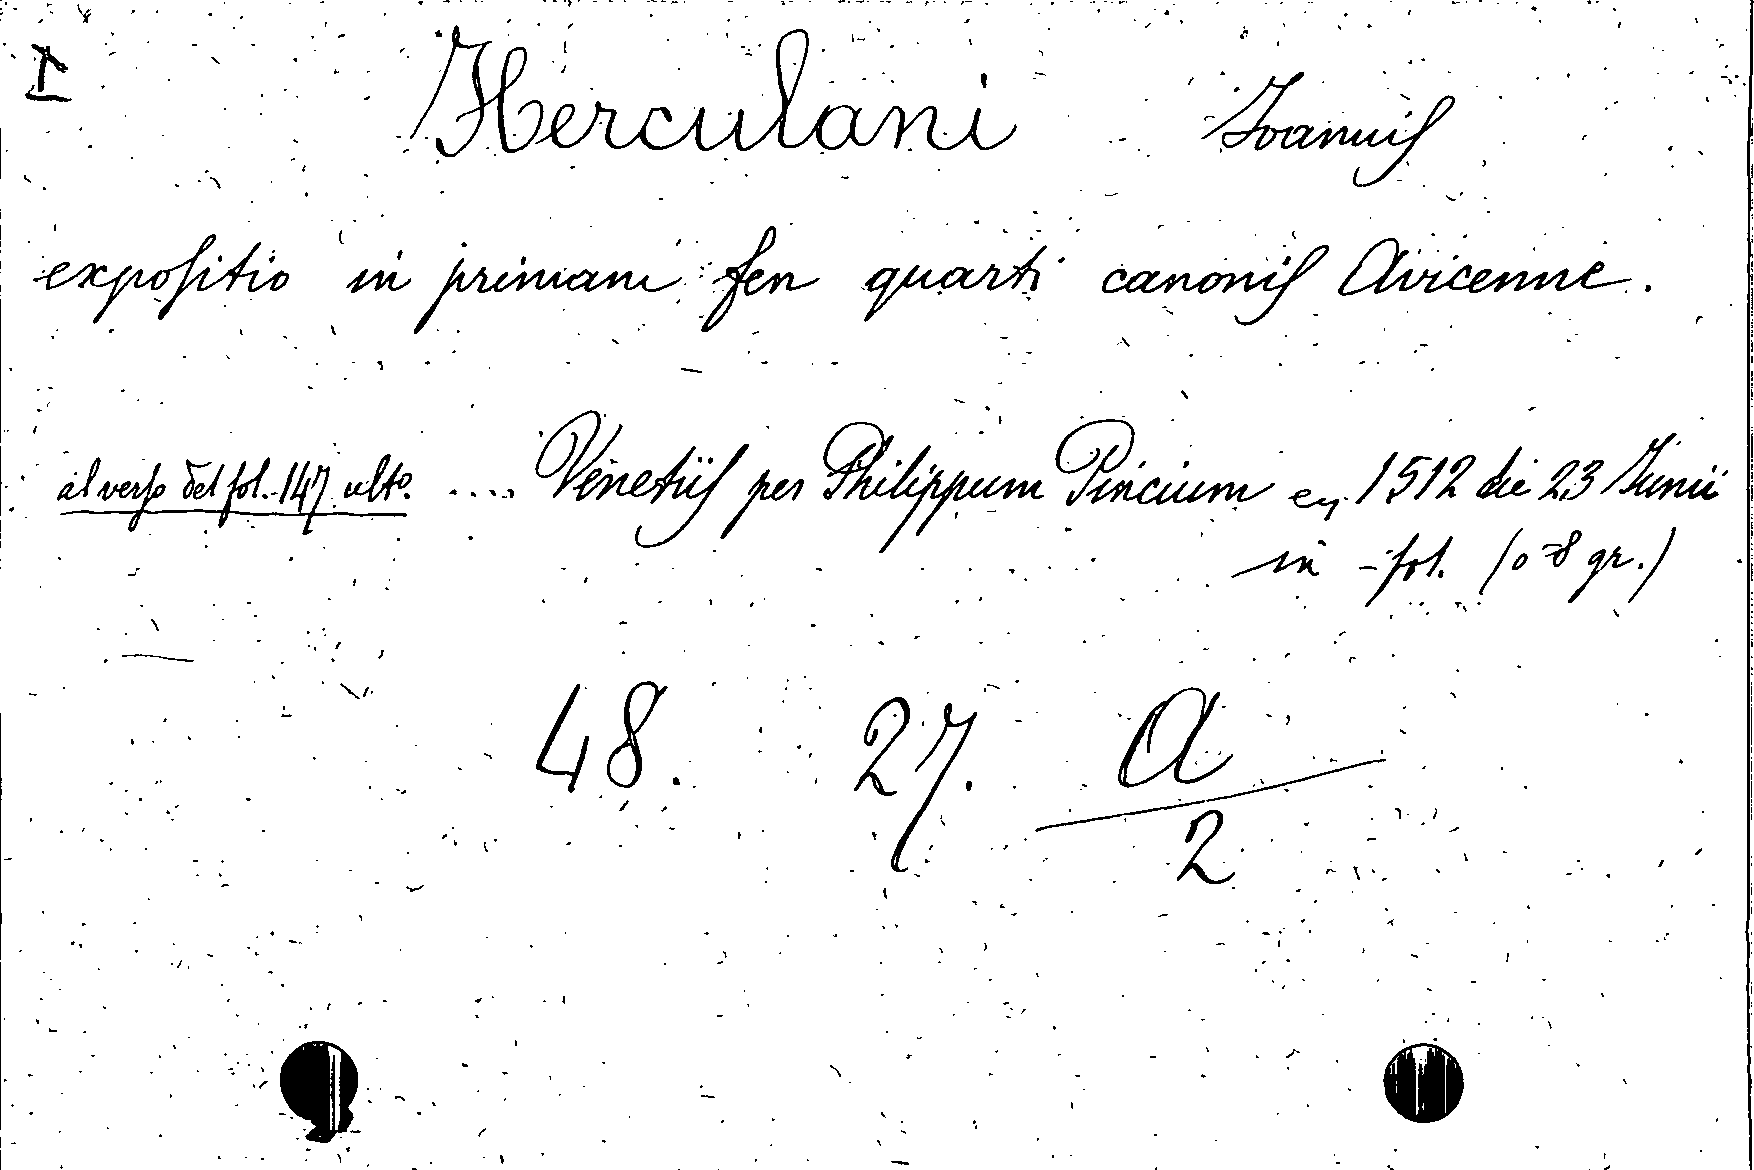 I
Herculani Joannis
expositio in primam fen quarti canonis Avicenne.
al verso del fol. 147 ulto. .... Venetiis per Philippum Pincium 1512 die 23 Junii
in - fol. (o-8 gr.)
48. 27. A
2